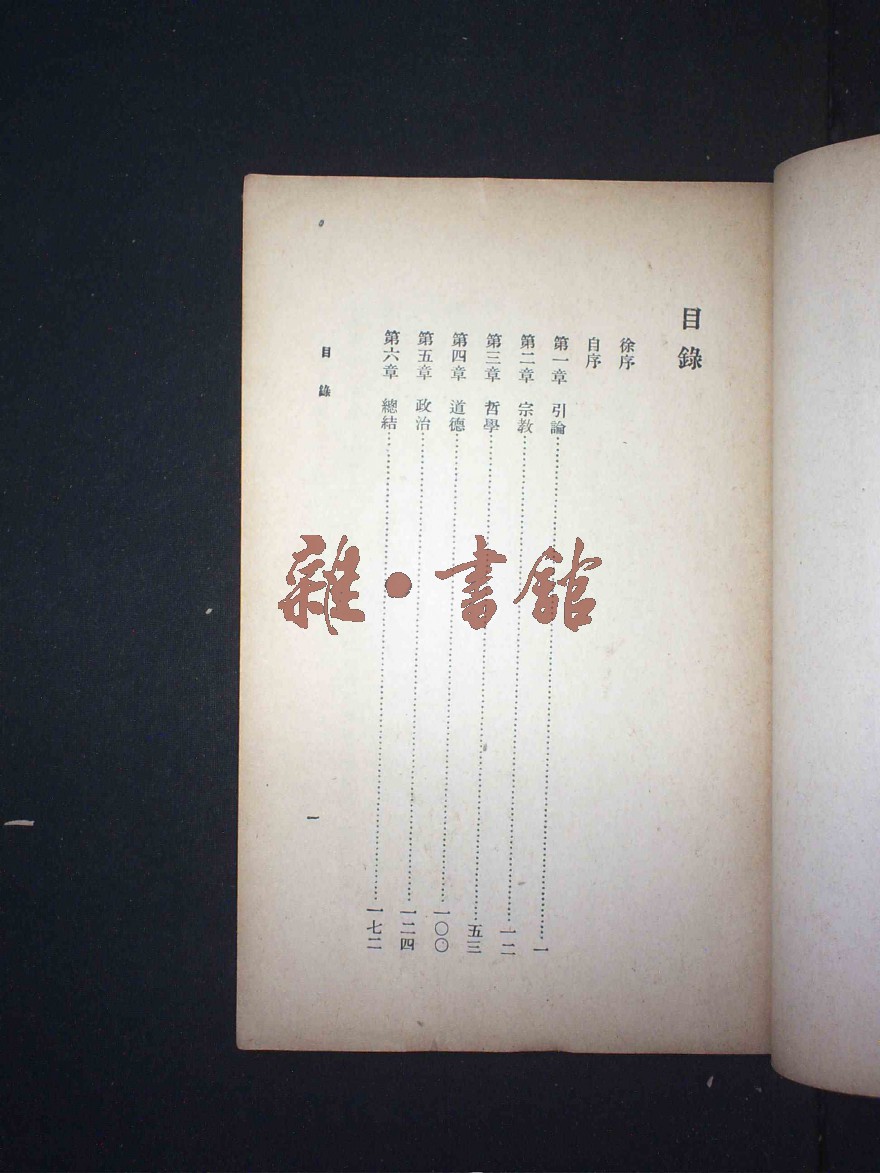 目錄
徐序
自序
第一章 引論……一
第二章 宗教……一二
第三章 哲學……五三
第四章 道德……一〇〇
第五章 政治……一二四
第六章 總結……一七二
目錄
一
雜·書館